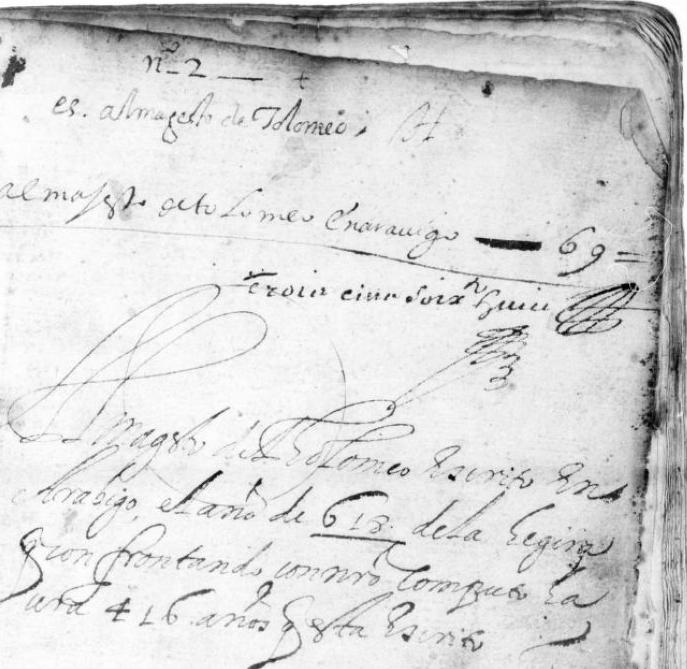 nº 2 — +
es. almagesto de Tolomeo,
almagesto de tolomeo En aravigo — 69 =
Trois cens soixte huict
Almagesto de Tolomeo Escrito En
Arabigo, el año de 618. de la Hegira
q confrontando con nro Computo ha
ura 416 años q Esta Escrito